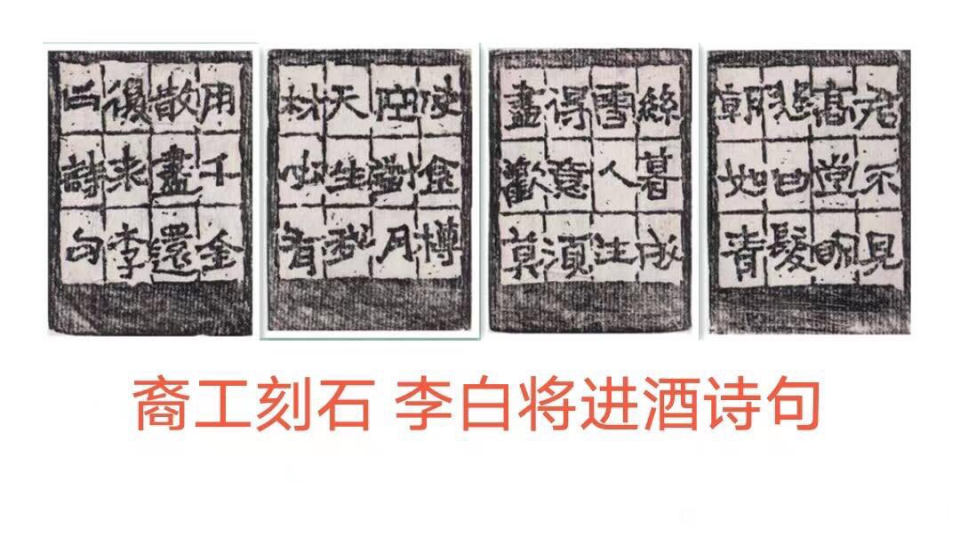 君不見
高堂明
悲白髮
朝如青
絲暮成
雪人生
得意須
盡歡莫
使金樽
空對月
天生我
材必有
用千金
散盡還
復來李
白詩句
裔工刻石 李白将进酒诗句